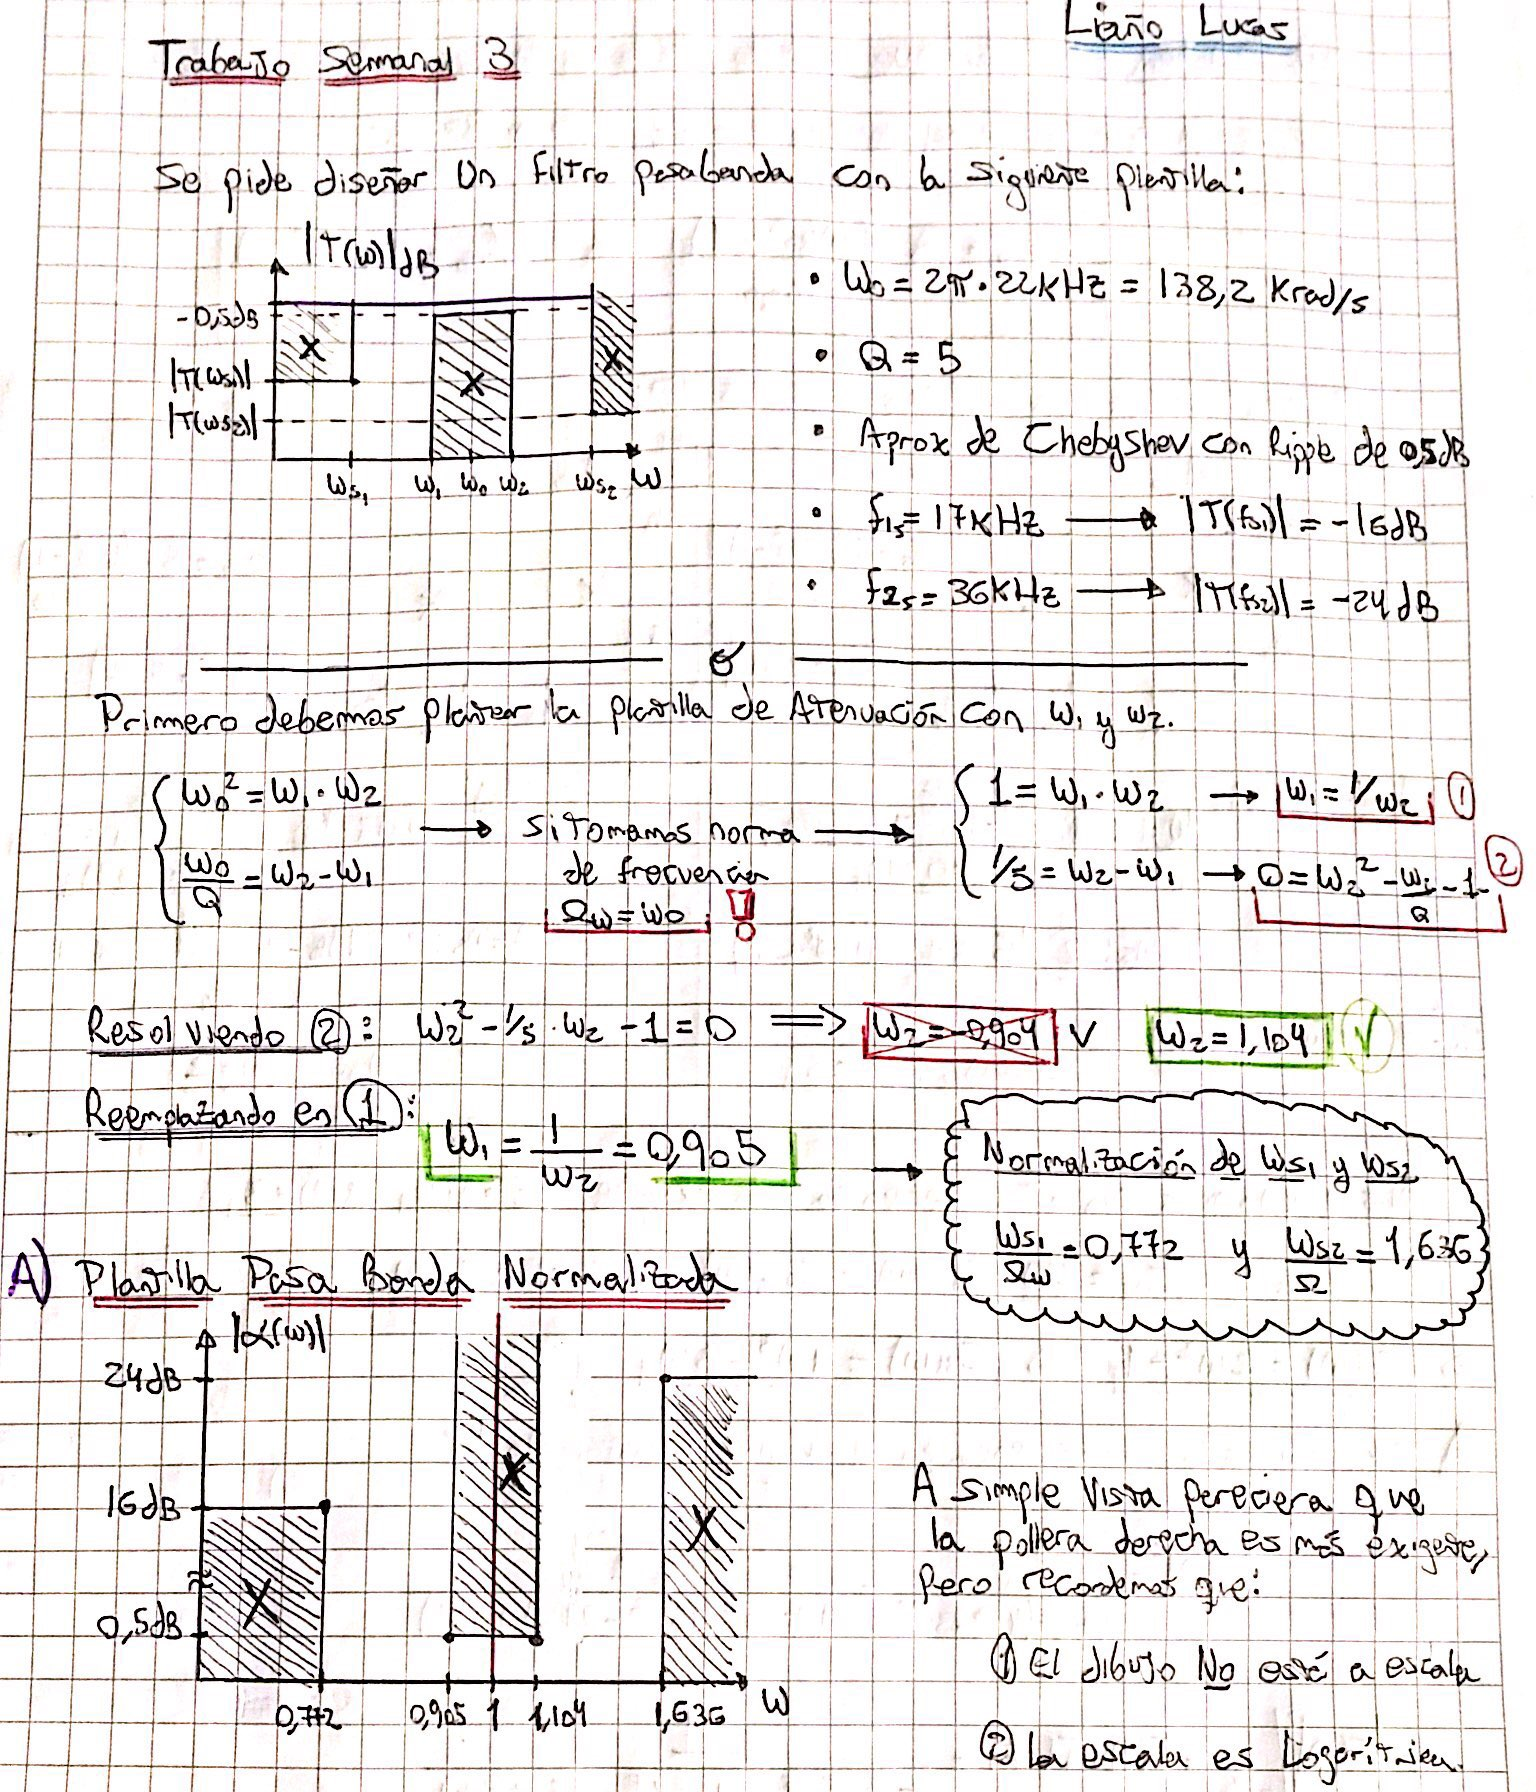 Liaño Lucas
Trabajo Semanal 3
Se pide diseñar un filtro pasabanda con la siguiente plantilla:
|T(ω)|dB
-0,5dB
|T(ωs1)|
|T(ωs2)|
ωs1 ω1 ω0 ω2 ωs2 ω
• ω0 = 2π·22KHz = 138,2 Krad/s
• Q = 5
• Aprox de Chebyshev con Ripple de 0,5dB
• f1s = 17KHz → |T(fs1)| = -16dB
• f2s = 36KHz → |T(fs2)| = -24dB
Primero debemos plantear la plantilla de Atenuación con ω1 y ω2.
{ ω0² = ω1·ω2
ω0/Q = ω2-ω1
→ Si tomamos norma
de frecuencia
Ωω = ω0 !
→ { 1 = ω1·ω2 → ω1 = 1/ω2 ①
1/5 = ω2-ω1 → 0 = ω2² - ω2/Q - 1 ②
Resolviendo ②: ω2² - 1/5·ω2 - 1 = 0 ⟹ ω2 = -0,904 ∨ ω2 = 1,104 ✓
Reemplazando en ①: ω1 = 1/ω2 = 0,905 →
Normalización de ωs1 y ωs2
ωs1/Ωω = 0,772 y ωs2/Ω = 1,636
A) Plantilla Pasa Banda Normalizada
|α(ω)|
24dB
16dB
0,5dB
0,772 0,905 1 1,104 1,636 ω
A simple vista pareciera que
la pollera derecha es más exigente,
pero recordemos que:
① El dibujo No está a escala
② La escala es Logarítmica.